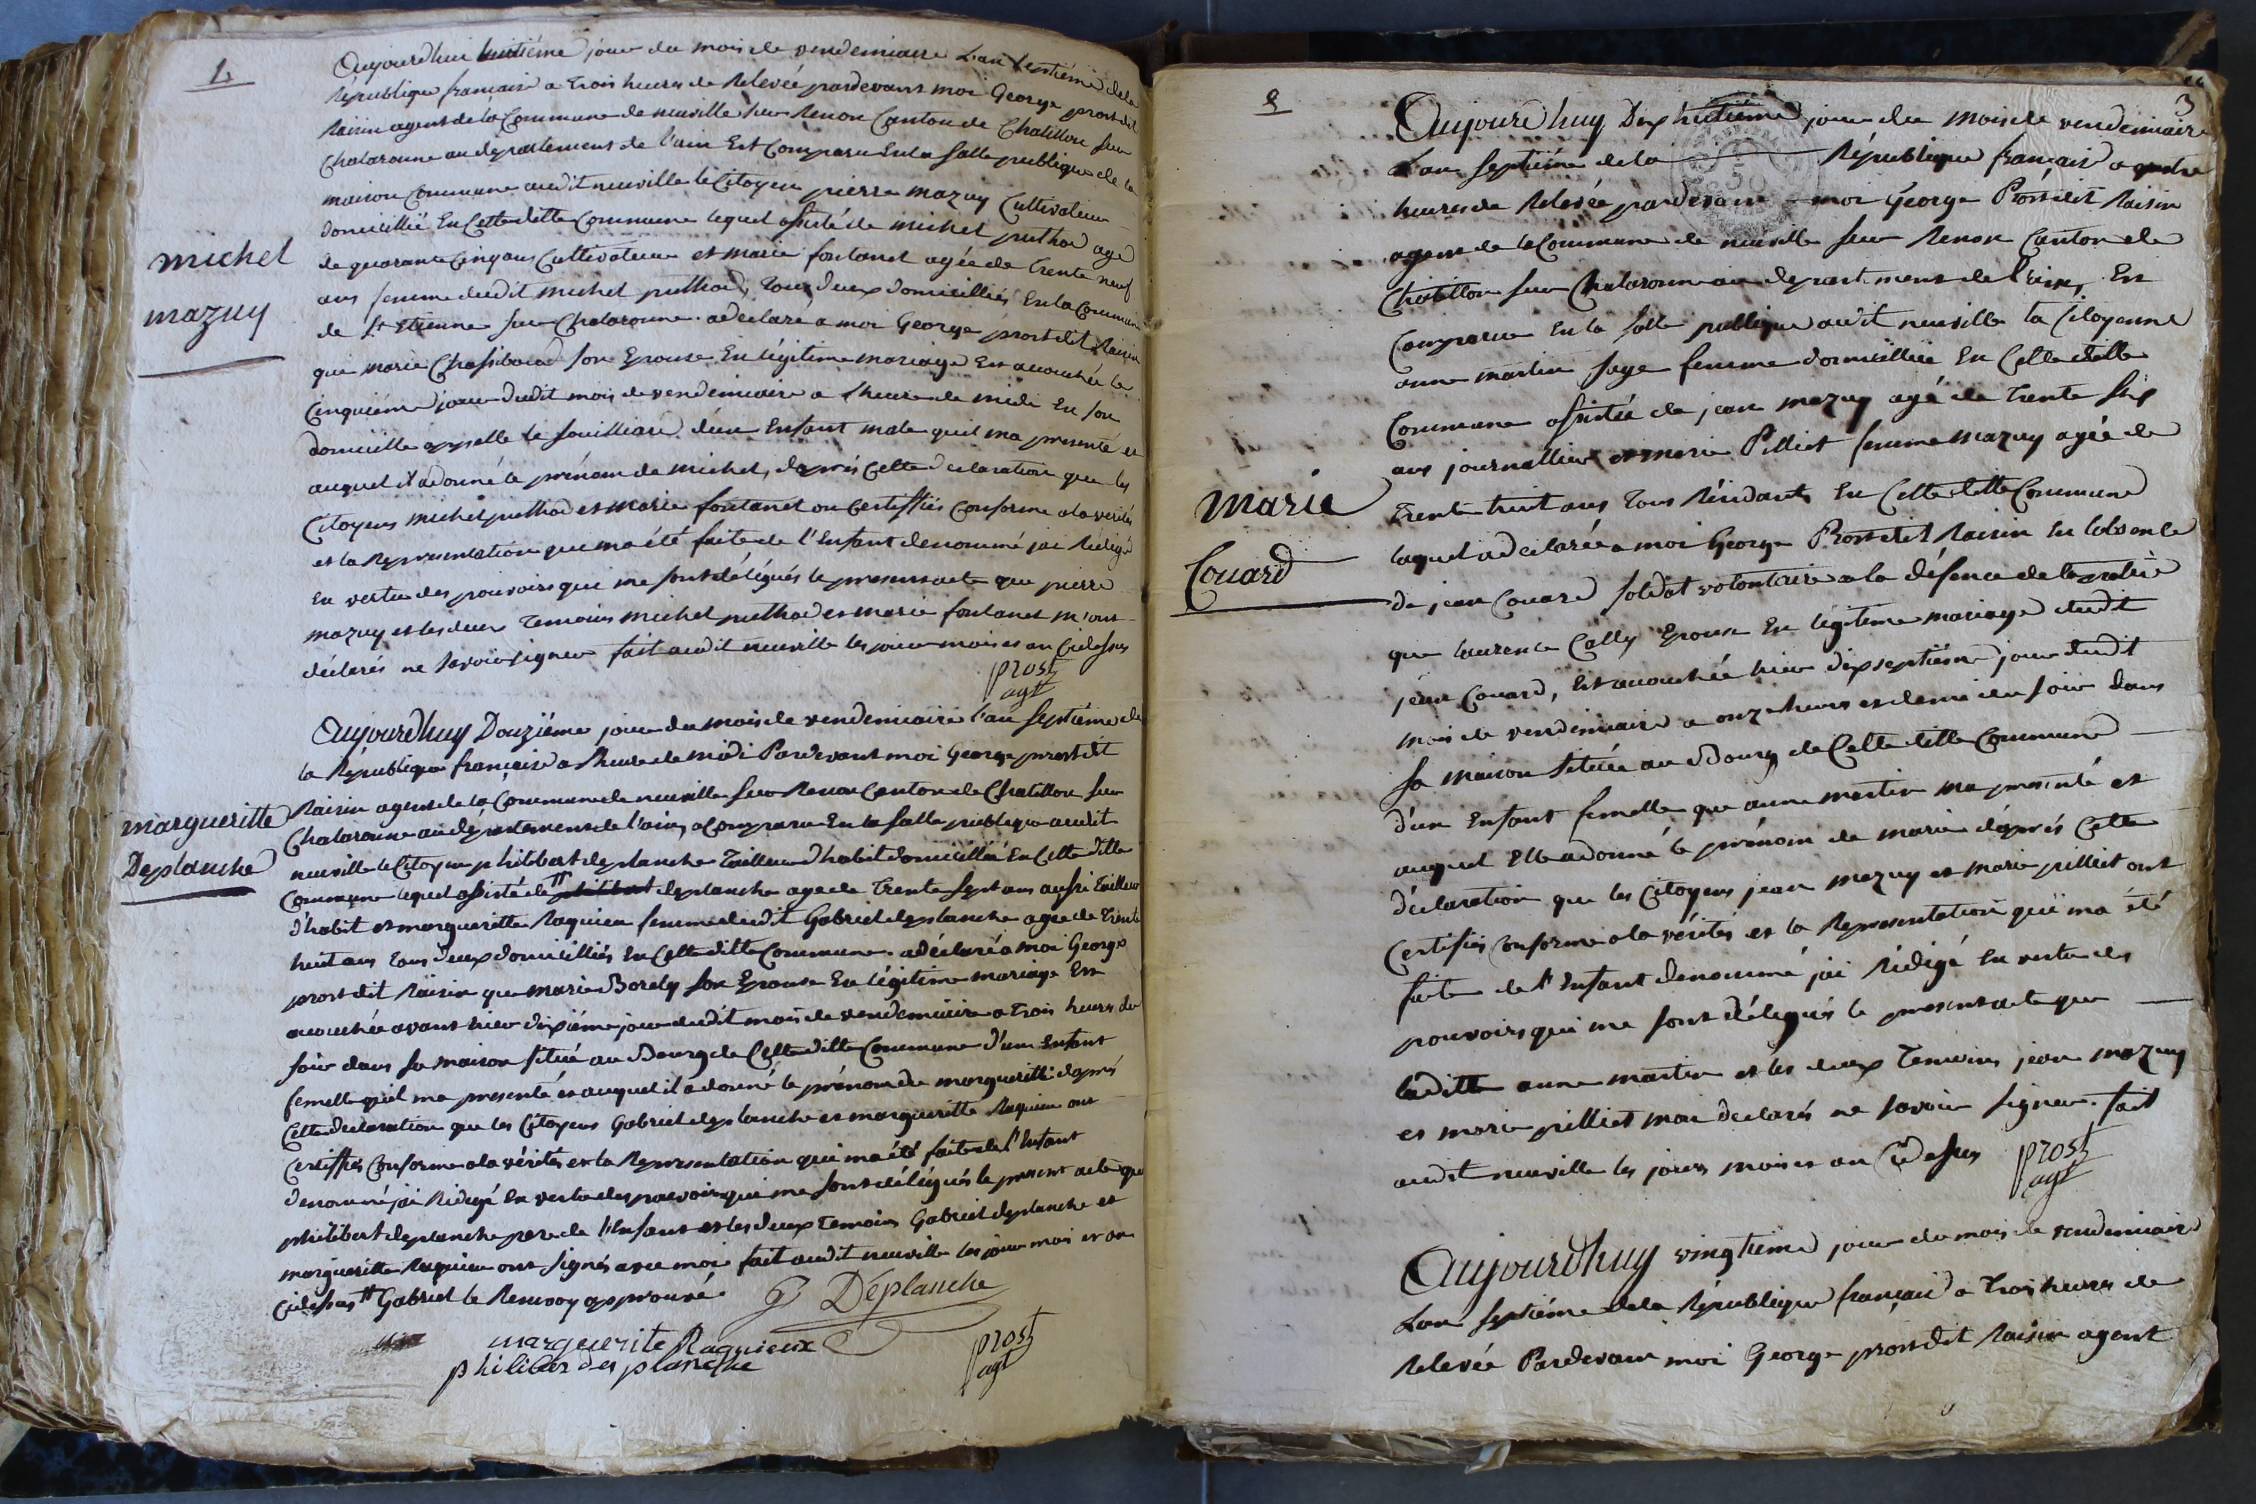 1
Aujourdhui huitiéme jour du mois de vendemiaire L'an septiéme de la
République française a trois heures de Relevée pardevant moi George prost dit
Raisin agent de la Commune de neuville sur Renon Canton de Chatillon sur
Chalaronne au departement de l'ain Est Comparu En la salle publique de la
maison Commune audit neuville le Citoyen pierre mazuy Cultivateur
domicillié En Cette ditte Commune lequel assisté de michel puthod agé
de quarante Cinq ans Cultivateur et marie fontanet agée de trente neuf
ans femme dudit michel puthod, tous deux domicilliés En la Commune
de St Etienne sur Chalaronne. a declaré a moi George prost dit Raisin
que marie Chassiboud son Epouse En légitime mariage Est acouchée le
Cinquiéme jour dudit mois de vendemiaire a l'heure de midi En son
domicille appellé le souilliard d'un Enfant male quil ma presenté et
auquel il a donné le prénom de michel, daprés Cette declaration que les
Citoyens michel puthod et marie fontanet on Certiffiés Conforme a la vérités
et la Representation qui ma été faite de l'Enfant denommé jai Rédigé
En vertu des pouvoirs qui me sont délégués le present acte que pierre
mazuy et les deux temoins michel puthod et marie fontanet m'ont
déclarés ne savoir signer fait audit neuville les jour mois et an Cidessus
prost
agt
michel
mazuy
Aujourdhuy Douziéme jour du mois de vendemiaire l'an septiéme de
la République française a l'heure de midi Pardevant moi George prost dit
Raisin agent de la Commune de neuville sur Renon Canton de Chatillon sur
Chalaronne au département de l'ain, a Comparu En la salle publique audit
neuville le Citoyen philibert deplanche Tailleur d'habit domicillié En Cette ditte
Commune lequel assisté de # philibert deplanche agé de trente sept ans aussi tailleur
d'habit et margueritte Raquieu femme dudit Gabriel deplanche agée de trente
huit ans tous deux domicilliés En Cette ditte Commune. a déclaré a moi George
prost dit Raisin que marie Borely son Epouse En légitime mariage Est
acouchée avant hier dixiéme jour dudit mois de vendemiaire a trois heures du
soir dans sa maison situé au Bourg de Cette ditte Commune d'un Enfant
femelle qu'il ma presenté et auquel il a donné le prénom de margueritte daprés
Cette declaration que les Citoyens Gabriel deplanche et margueritte Raquieu ont
Certiffiés Conforme a la vérités et la Representation qui ma été faite de l'Enfant
denommé jai Rédigé En vertu des pouvoirs qui me sont délégués le present acte que
philibert deplanche pere de l'Enfant et les deux temoins Gabriel deplanche et
margueritte Raquieu ont signés avec moi fait audit neuville les jour mois et an
Cidessus # Gabriel le Renvoy approuvé
G Déplanche
marguerite Raquieux
philiber deplanche
prost
agt
margueritte
Deplanche
2
3
Aujourdhuy Dix huitiéme jour du mois de vendemiaire
L'an septiéme de la République française a quatre
heures de Relevée pardevant moi George Prost dit Raisin
agent de la Commune de neuville sur Renon Canton de
Chatillon sur Chalaronne au departement de l'ain, Est
Comparue En la salle publique audit neuville la Citoyenne
anne martin sage femme domicilliée En Cette ditte
Commune assistée de jean mazuy agé de trente six
ans journallier et marie Pilliet femme mazuy agée de
trente huit ans tous Résidants En Cette ditte Commune
laquel a declarée a moi George Prost dit Raisin En labsence
de jean Couard soldat volontaire a la défence de la patrie
que laurence Cally Epouse En légitime mariage dudit
jean Couard, Est acouchée hier dix septiéme jour dudit
mois de vendemiaire a onze heures et demi du soir dans
sa maison située au Bourg de Cette ditte Commune
d'un Enfant femelle que anne martin ma presenté et
auquel Elle a donné le prénom de marie daprés Cette
déclaration que les Citoyens jean mazuy et marie pilliet ont
Certifiés Conforme a la vérités et la Representation qui ma été
faite de l'Enfant denommé jai Rédigé En vertu des
pouvoirs qui me sont délegués le present acte que
laditte anne martin et les deux temoins jean mazuy
et marie pilliet mon declarés ne savoir signer. fait
audit neuville les jours mois et an Cidessus
prost
agt
marie
Couard
Aujourdhuy vingtiéme jour du mois de vendemiaire
L'an septiéme de la République français a trois heures de
Relevée Pardevant moi George prost dit Raisin agent